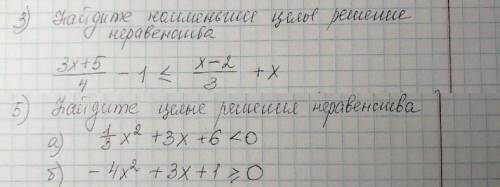 3) Найдите наименьшее целое решение
неравенства
(3x+5)/4 - 1 ≤ (x-2)/3 + x
5) Найдите целые решения неравенства
а) 1/3 x² + 3x + 6 < 0
б) - 4x² + 3x + 1 ≥ 0